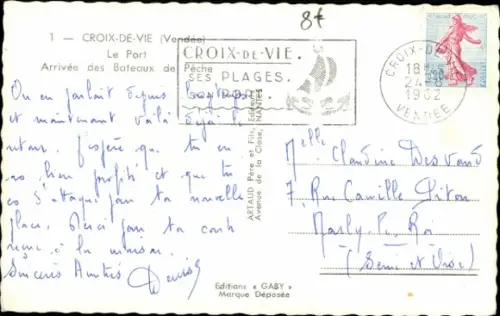 8f
1 - CROIX-DE-VIE (Vendée)
Le Port
Arrivée des Bateaux de Pêche
CROIX-DE-VIE.
SES PLAGES.
SON PORT.
CROIX-DE-VIE
18H
24-8
1962
VENDÉE
On en parlait depuis longtemps
et maintenant voilà déjà le
retour. J'espère que tu en
as bien profité et que tu
es
ta nouvelle
place. Merci pour ta carte
reçue à la maison.
Sincères Amitiés
Denise
ARTAUD Père et Fils, Éditeurs
Avenue de la Close, NANTES
Melle Claudine
7, Rue Camille
Marly-le-Roi
(Seine et Oise)
Editions « GABY »
Marque Déposée